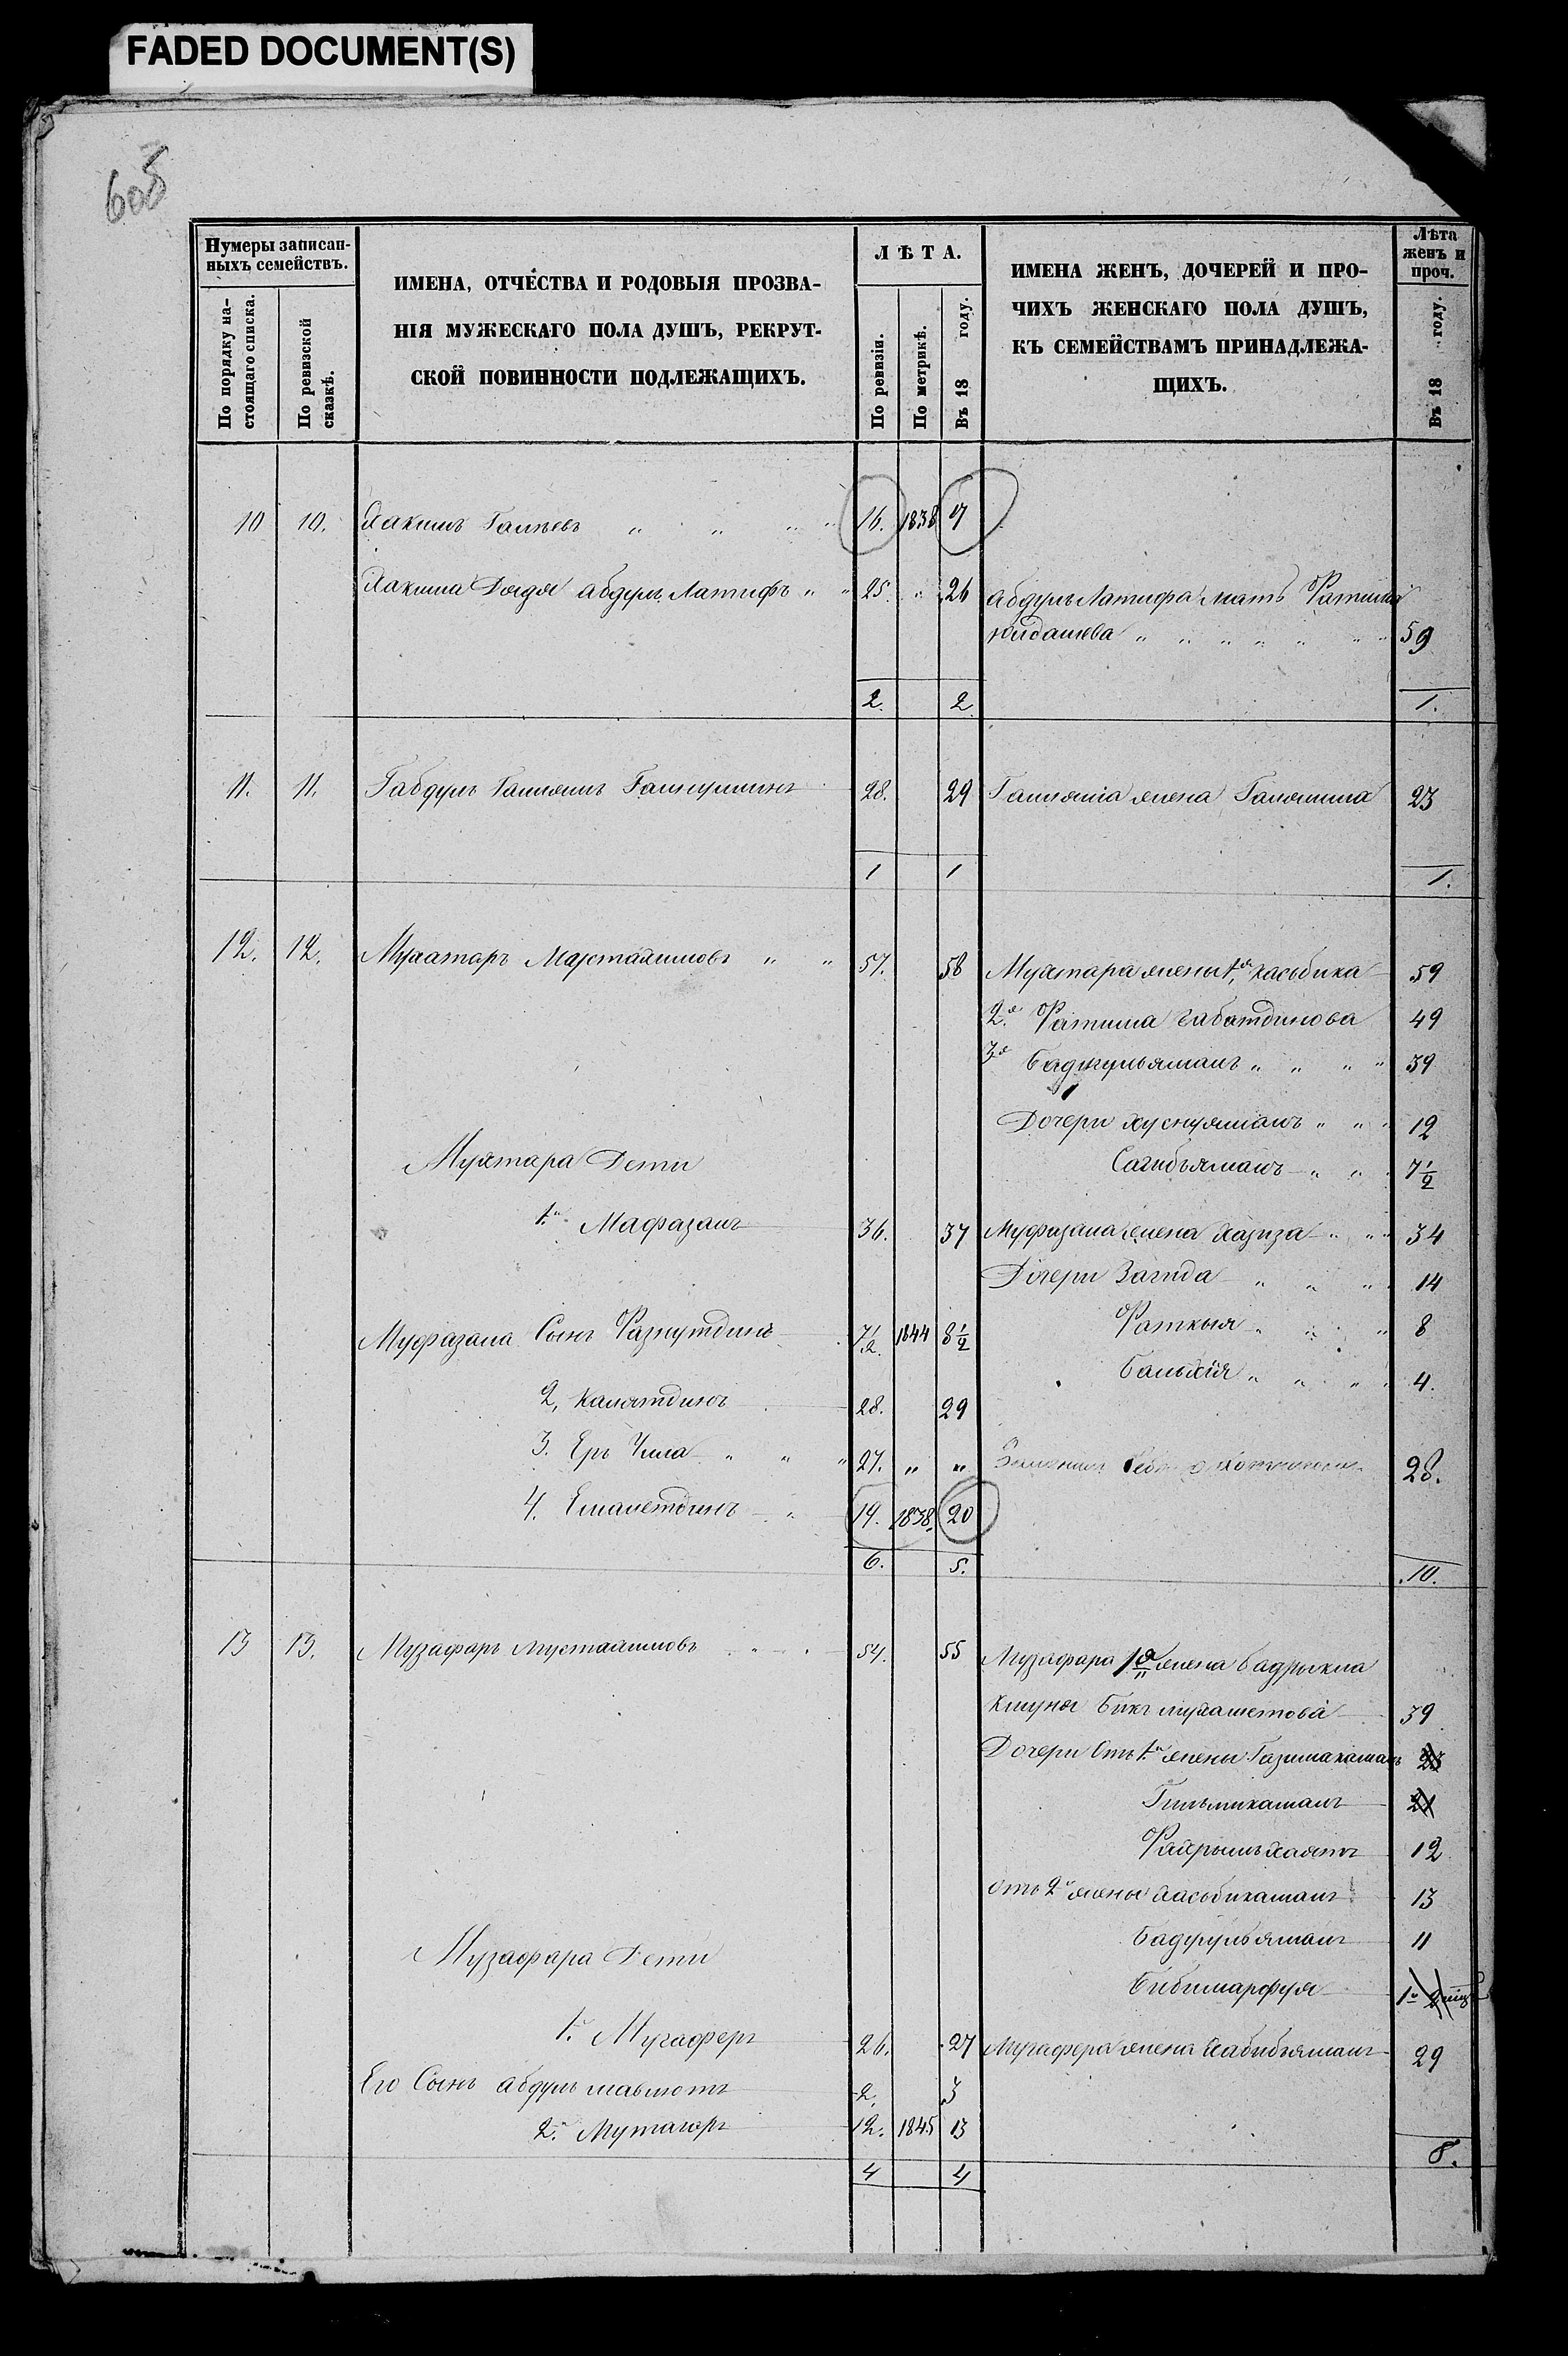 FADED DOCUMENT(S)
605
Нумеры записан-
ныхъ семействъ.
По порядку на-
стоящаго списка.
По ревизской
сказкѣ.
ИМЕНА, ОТЧЕСТВА И РОДОВЫЯ ПРОЗВА-
НІЯ МУЖЕСКАГО ПОЛА ДУШЪ, РЕКРУТ-
СКОЙ ПОВИННОСТИ ПОДЛЕЖАЩИХЪ.
ЛѢТА.
По ревизіи.
По метрикѣ.
Въ 18 году.
ИМЕНА ЖЕНЪ, ДОЧЕРЕЙ И ПРО-
ЧИХЪ ЖЕНСКАГО ПОЛА ДУШЪ,
КЪ СЕМЕЙСТВАМЪ ПРИНАДЛЕЖА-
ЩИХЪ.
Лѣта
женъ и
проч.
Въ 18 году.
10 10. Хакимъ Галѣевъ " " " " 16. 1838 17
Хакима Дядя Абдулъ Латифъ " " 25. " 26 Абдулъ Латифа мать Фатима
Юлдашева " " " " " " " 59
2. 2 1.
11. 11. Габдулъ 28. 29 жена 23
1 1 1.
12. 12. Мухатаръ " " 57. 58 Мухтара жены 1я Хасьбика 59
2я Фатима Габатдинова 49
3я Бадигульямалъ " " " " 39
Дочери Хуснуямалъ " " " 12
Мухтара Дети Сагибьямалъ " " 7½
1. Мафазалъ 36. 37 Муфазала жена Хазиза " " " 34
Дочери Загида " " " 14
Муфазала Сынъ Фазлутдинъ 7½. 1844 8½ Фаткыя " " " 8
Балыхія " " " " 4.
2, Калятдинъ 28. 29
3. Еръ " " " 27. " " 28.
4. Еманетдинъ " 19. 1838. 20
6. 5. 10.
13 13. Музафаръ Мустакимовъ " 54. 55 Музафара 1я жена
Бикъ Мухаметова 39
Дочери Отъ 1й жены 23
21
12
отъ 2й жены Хасьбикамалъ 13
Музафара Дети Бадрульямалъ 11
Бибимарфуя
1. Мугаферъ 26. 27 Мугафера жена Хабибьямалъ 29
Его Сынъ Абдулъ 2. 3
2. Мутагаръ 12. 1845 13
4 4 8.